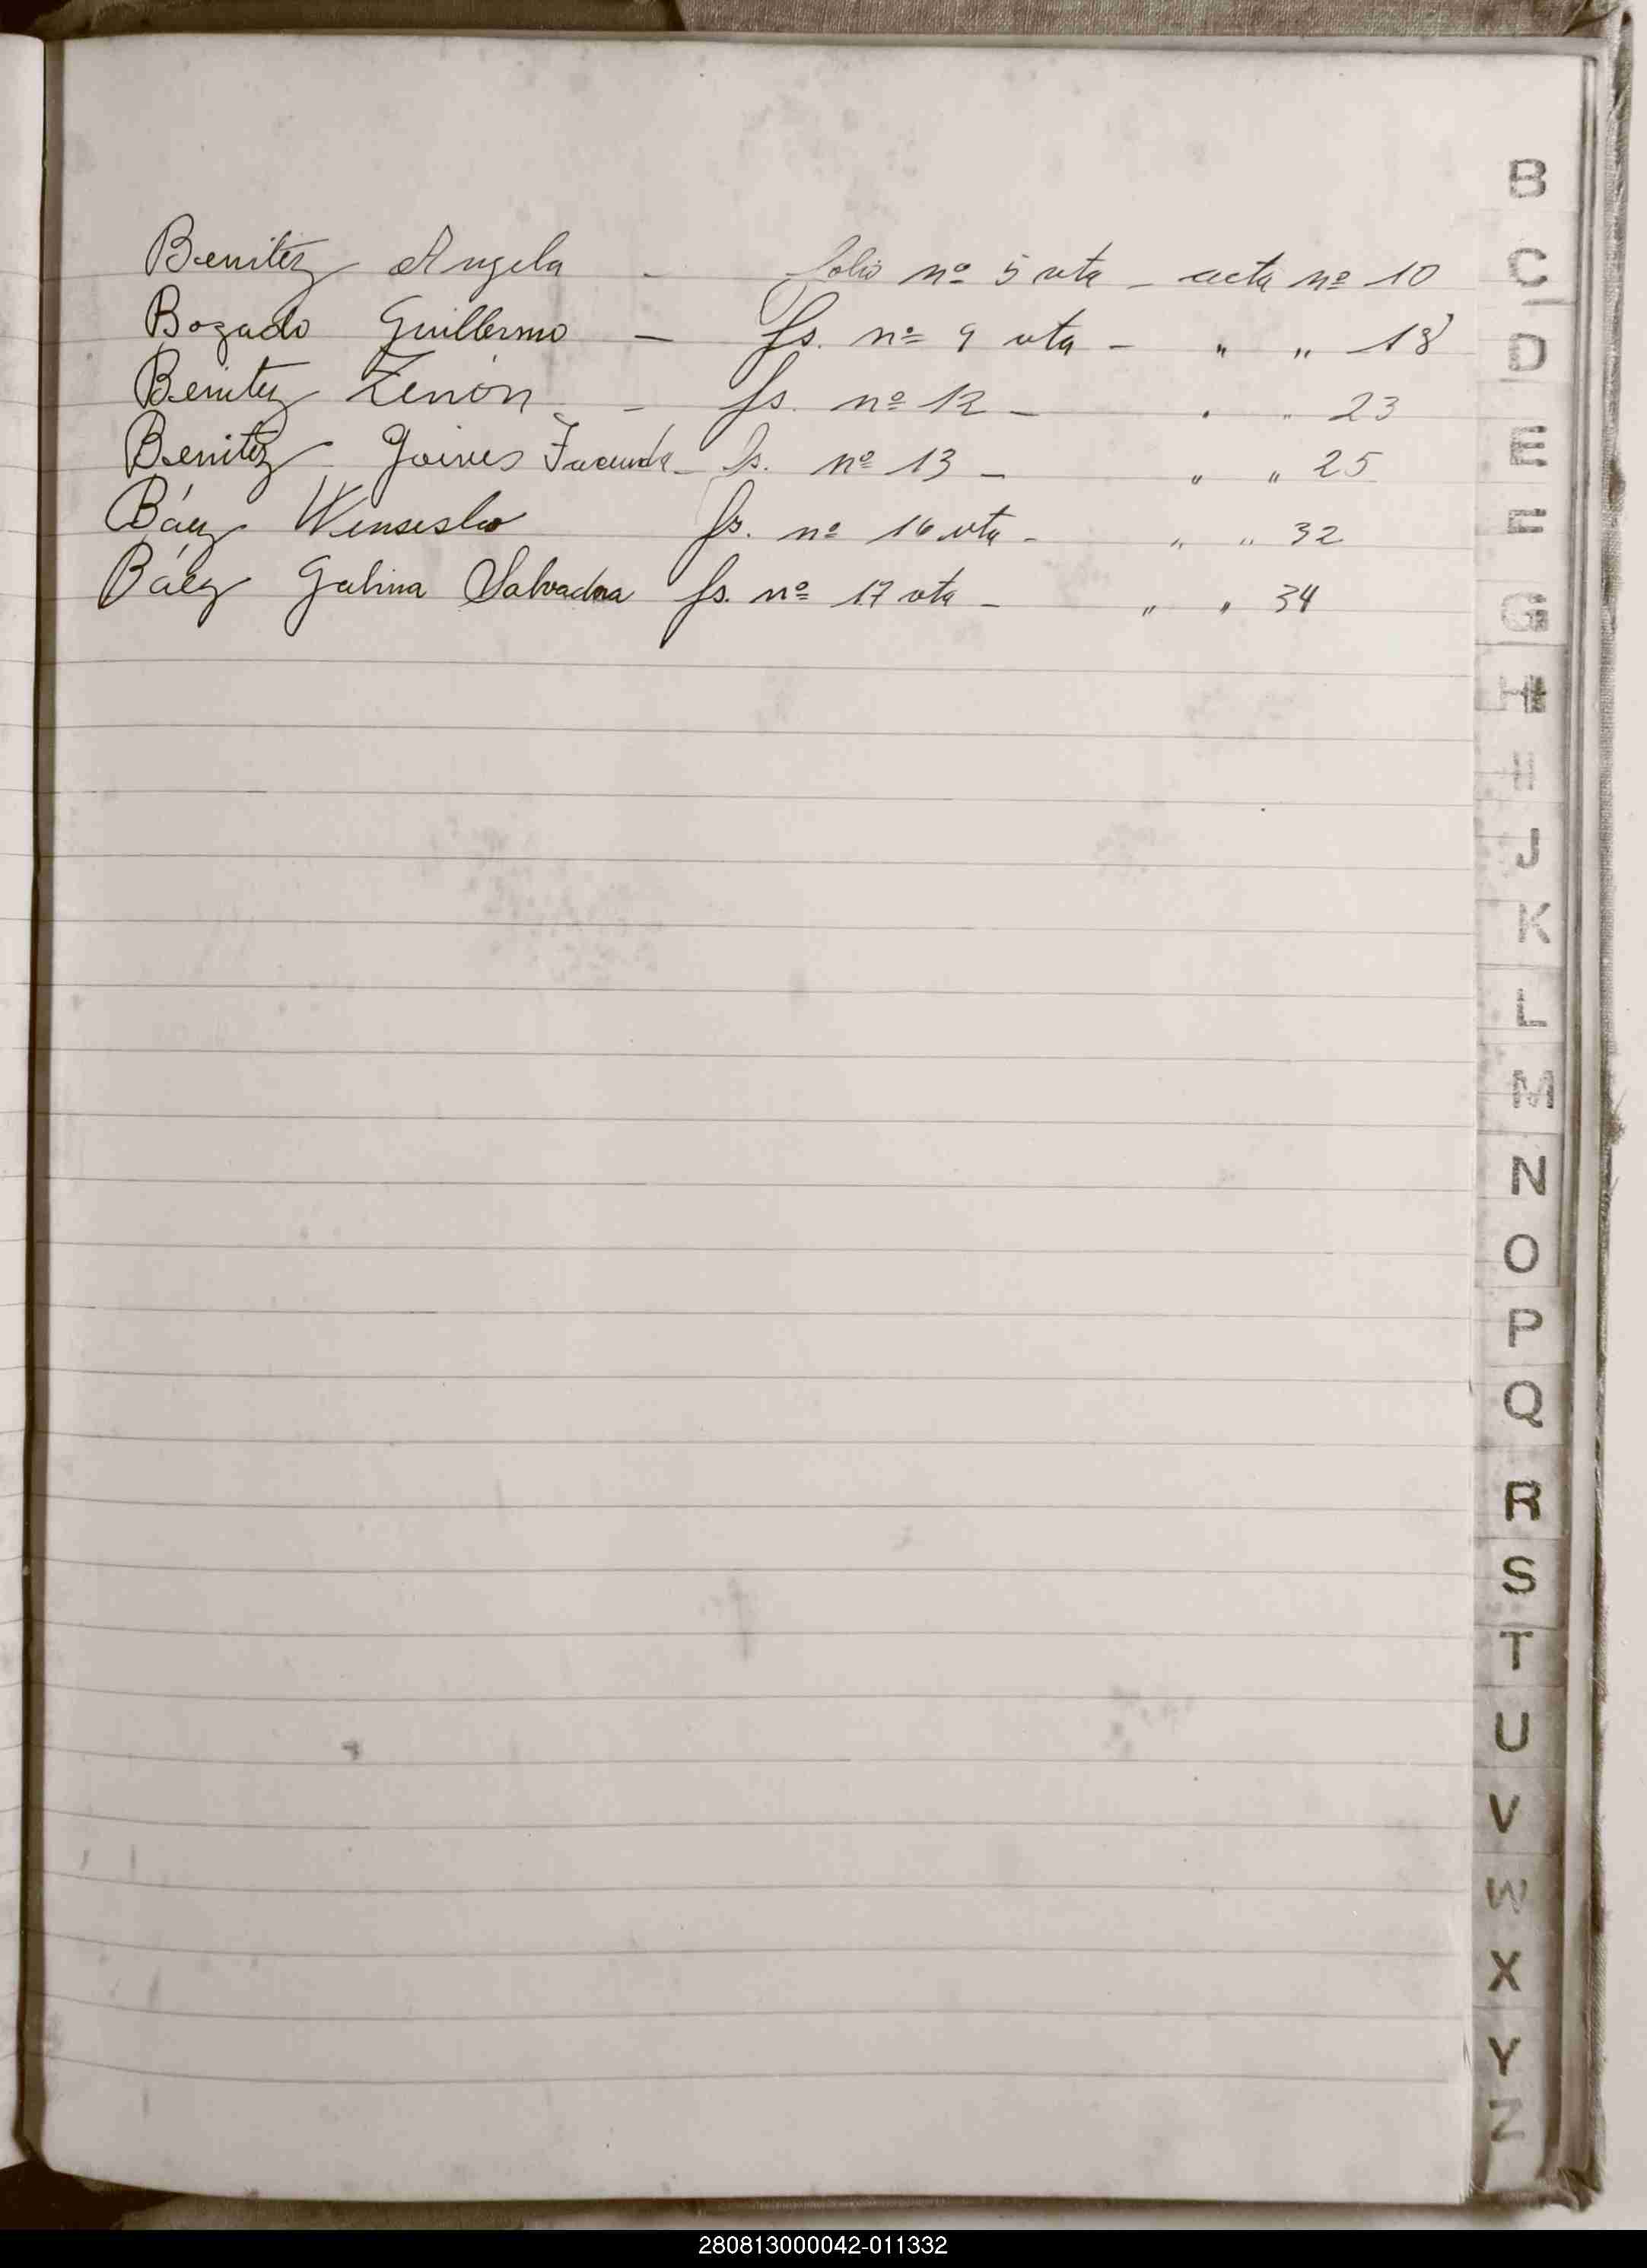 Benitez Angela - folio nº 5 vta - acta nº 10
Bozado Guillermo - fs. nº 9 vta - " " 18
Benitez Zenón - fs. nº 12 - " " 23
Benitez Facunda - fs. nº 13 - " " 25
Báez Wenseslao fs. nº 16 vta - " " 32
Báez Galina Salvadora fs. nº 17 vta - " " 34
B
C
D
E
F
G
H
I
J
K
L
M
N
O
P
Q
R
S
T
U
V
W
X
Y
Z
280813000042-011332